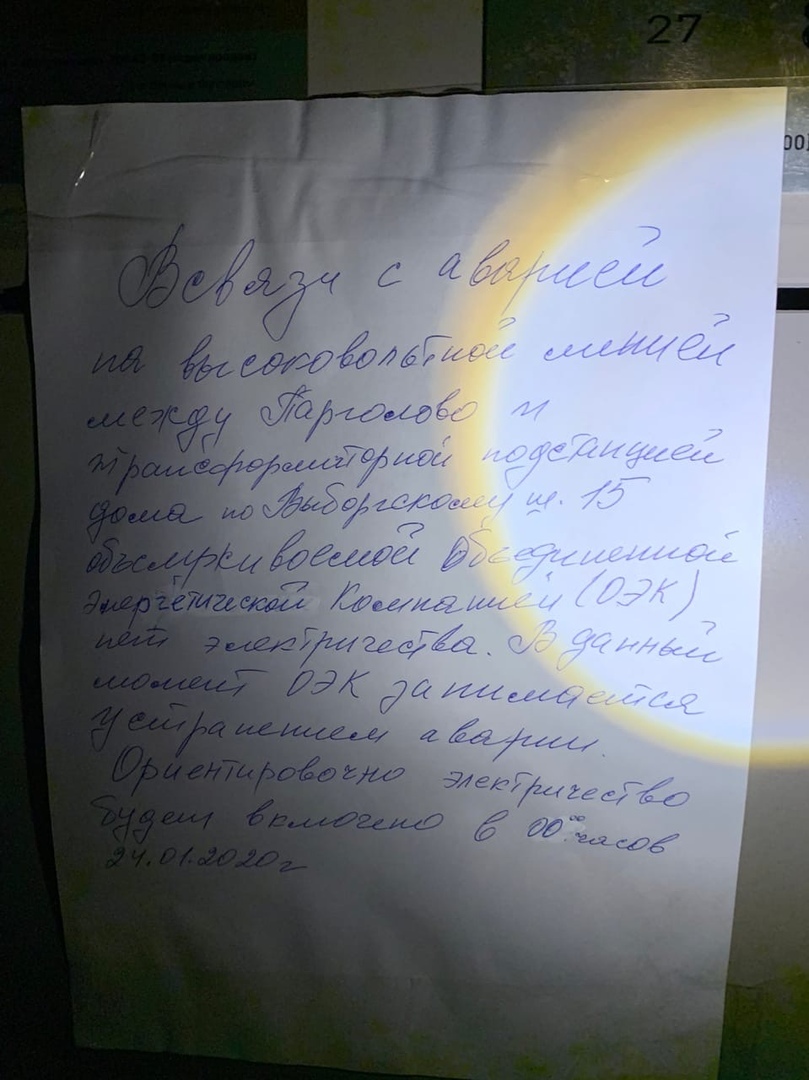 27
00)
В связи с аварией
на высоковольтной линией
между Парголово и
трансформаторной подстанцией
дома по Выборгскому ш. 15
обьслуживоемой Обьединенной
Энергетической Компанией (ОЭК)
нет электричества. В данный
момент ОЭК занимается
устранением аварии.
Ориентировочно электричество
будет включено в 00⁰⁰ часов
24.01.2020г